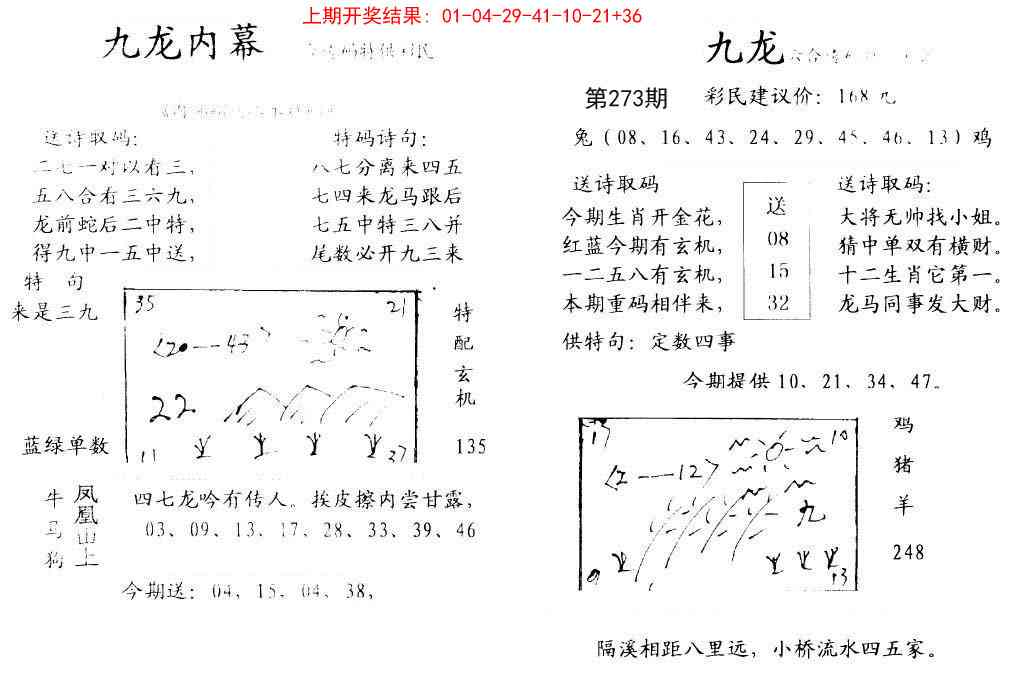 上期开奖结果：01-04-29-41-10-21+36
九龙内幕
送诗取码：
二七一对以有三，
五八合有三六九，
龙前蛇后二中特，
得九中一五中送，
特码诗句：
八七分离来四五
七四来龙马跟后
七五中特三八并
尾数必开九三来
特 句
来是三九
蓝绿单数
35
21
20——43
22
11
27
特
配
玄
机
135
牛
马
狗
凤
凰
山
上
四七龙吟有传人。挨皮擦内尝甘露，
03、09、13、17、28、33、39、46
今期送：04、15、04、38，
九龙
第273期 彩民建议价：168元
兔（08、16、43、24、29、45、46、13）鸡
送诗取码
今期生肖开金花，
红蓝今期有玄机，
一二五八有玄机，
本期重码相伴来，
送
08
15
32
送诗取码：
大将无帅找小姐。
猜中单双有横财。
十二生肖它第一。
龙马同事发大财。
供特句：定数四事
今期提供10、21、34、47。
17
10
2——12
九
9
13
鸡
猪
羊
248
隔溪相距八里远，小桥流水四五家。